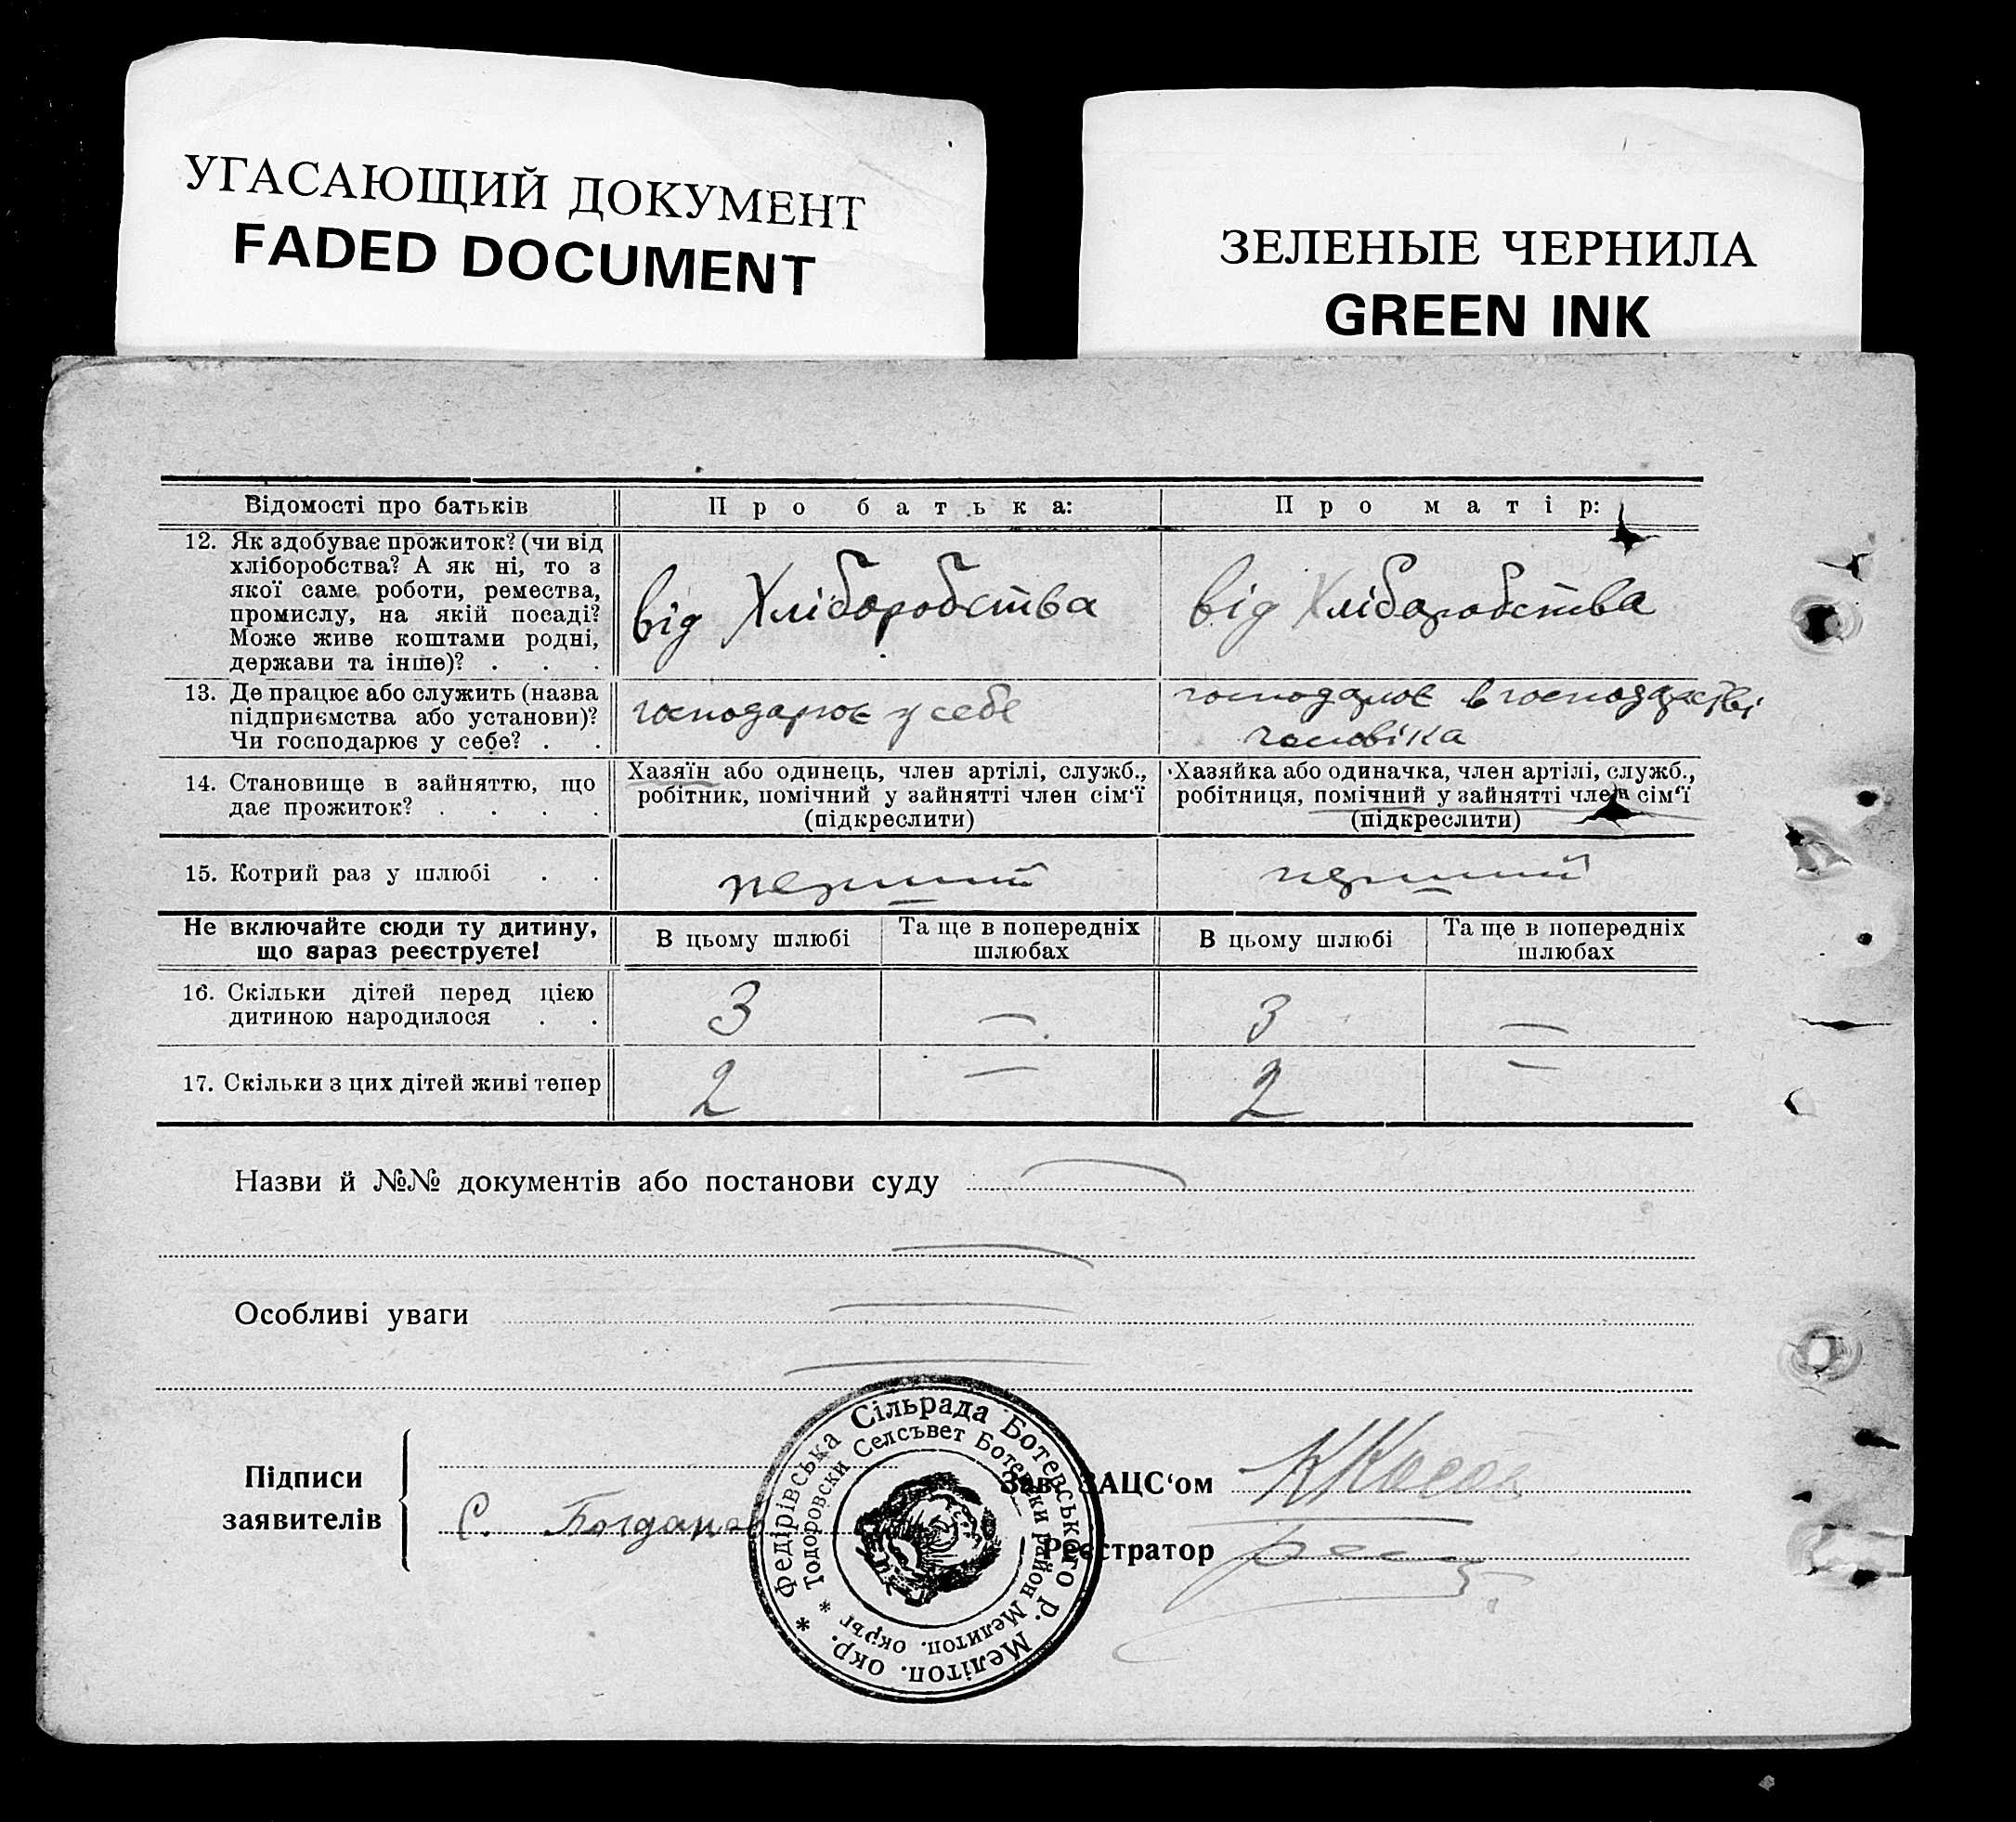 УГАСАЮЩИЙ ДОКУМЕНТ
FADED DOCUMENT
ЗЕЛЕНЫЕ ЧЕРНИЛА
GREEN INK
Відомості про батьків
Про батька:
Про матір:
12. Як здобуває прожиток? (чи від
хліборобства? А як ні, то з
якої саме роботи, ремества,
промислу, на якій посаді?
Може живе коштами родні,
держави та інше)? . . .
від Хліборобства
від Хліборобства
13. Де працює або служить (назва
підприємства або установи)?
Чи господарює у себе? . .
господарює у себе
господарює в господарстві
чоловіка
14. Становище в зайняттю, що
дає прожиток? . . . .
Хазяїн або одинець, член артілі, служб.,
робітник, помічний у зайнятті член сім'ї
(підкреслити)
Хазяйка або одиначка, член артілі, служб.,
робітниця, помічний у зайнятті член сім'ї
(підкреслити)
15. Котрий раз у шлюбі . .
перший
перший
Не включайте сюди ту дитину,
що зараз реєструєте!
В цьому шлюбі
Та ще в попередніх
шлюбах
В цьому шлюбі
Та ще в попередніх
шлюбах
16. Скільки дітей перед цією
дитиною народилося . .
3
—
3
—
17. Скільки з цих дітей живі тепер
2
—
2
—
Назви й №№ документів або постанови суду
Особливі уваги
Підписи
заявителів
С. Богданов
Зав. ЗАЦС'ом
Реєстратор
* Федірівська Сільрада Ботевського р. Мелітоп. окр.
* Тодоровски Селсъвет Ботевски район Мелитоп. окръг